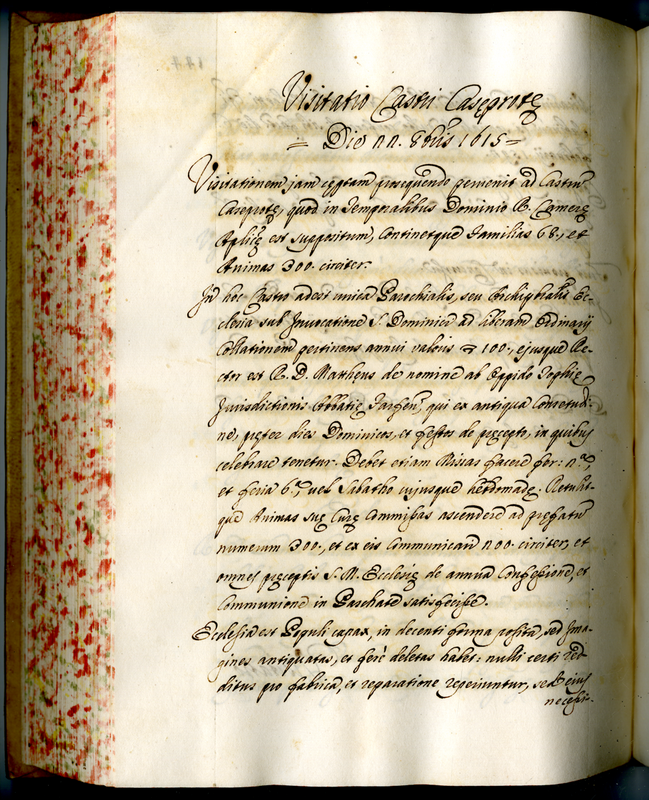 Visitatio Castri Caseprotę
= Die 22. 8bris 1615 =
Visitationem jam cęptam prosequendo pervenit ad Castrum
Caseprotę, quod in temporalibus Dominio R. Camerę
Aplicę est suppositum, Continetque familias 68., et
Animas 300. circiter.
In hoc Castro adest unica Parochialis, seu Archipbralis Ec-
clesia sub Invocatione S. Dominici ad liberam Ordinarij
Collationem pertinens annui valoris 100., ejusque Re-
ctor est R. D. Mattheus de nomine ab Oppido Tophię
Jurisdictionis Abbatię Farfen., qui ex antiqua Consuetudi-
ne, pręter dies Dominicos, et festos de pręcepto, in quibus
celebrare tenetur. Debet etiam Missas facere fer: 2.ª,
et feria 6.ª, vel Sabatho cujusque hebdomadę. Retulit-
que Animas suę Curę Commissas ascendere ad pręfatum
numerum 300., et ex eis Communicari 200. circiter, et
omnes pręceptis S. M. Ecclesię de annua Confessione, et
Communione in Paschate satisfecisse.
Ecclesia est Populi capax, in decenti forma posita, sed Ima-
gines antiquatas, et ferè deletas habet: nulli certi red-
ditus pro fabrica, et reparatione reperiuntur, sed ejus
necessit-